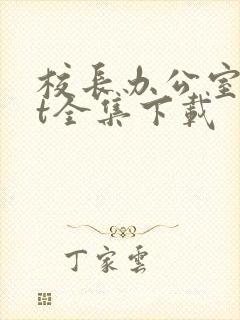 校长办公室
t全集下載
丁家雲